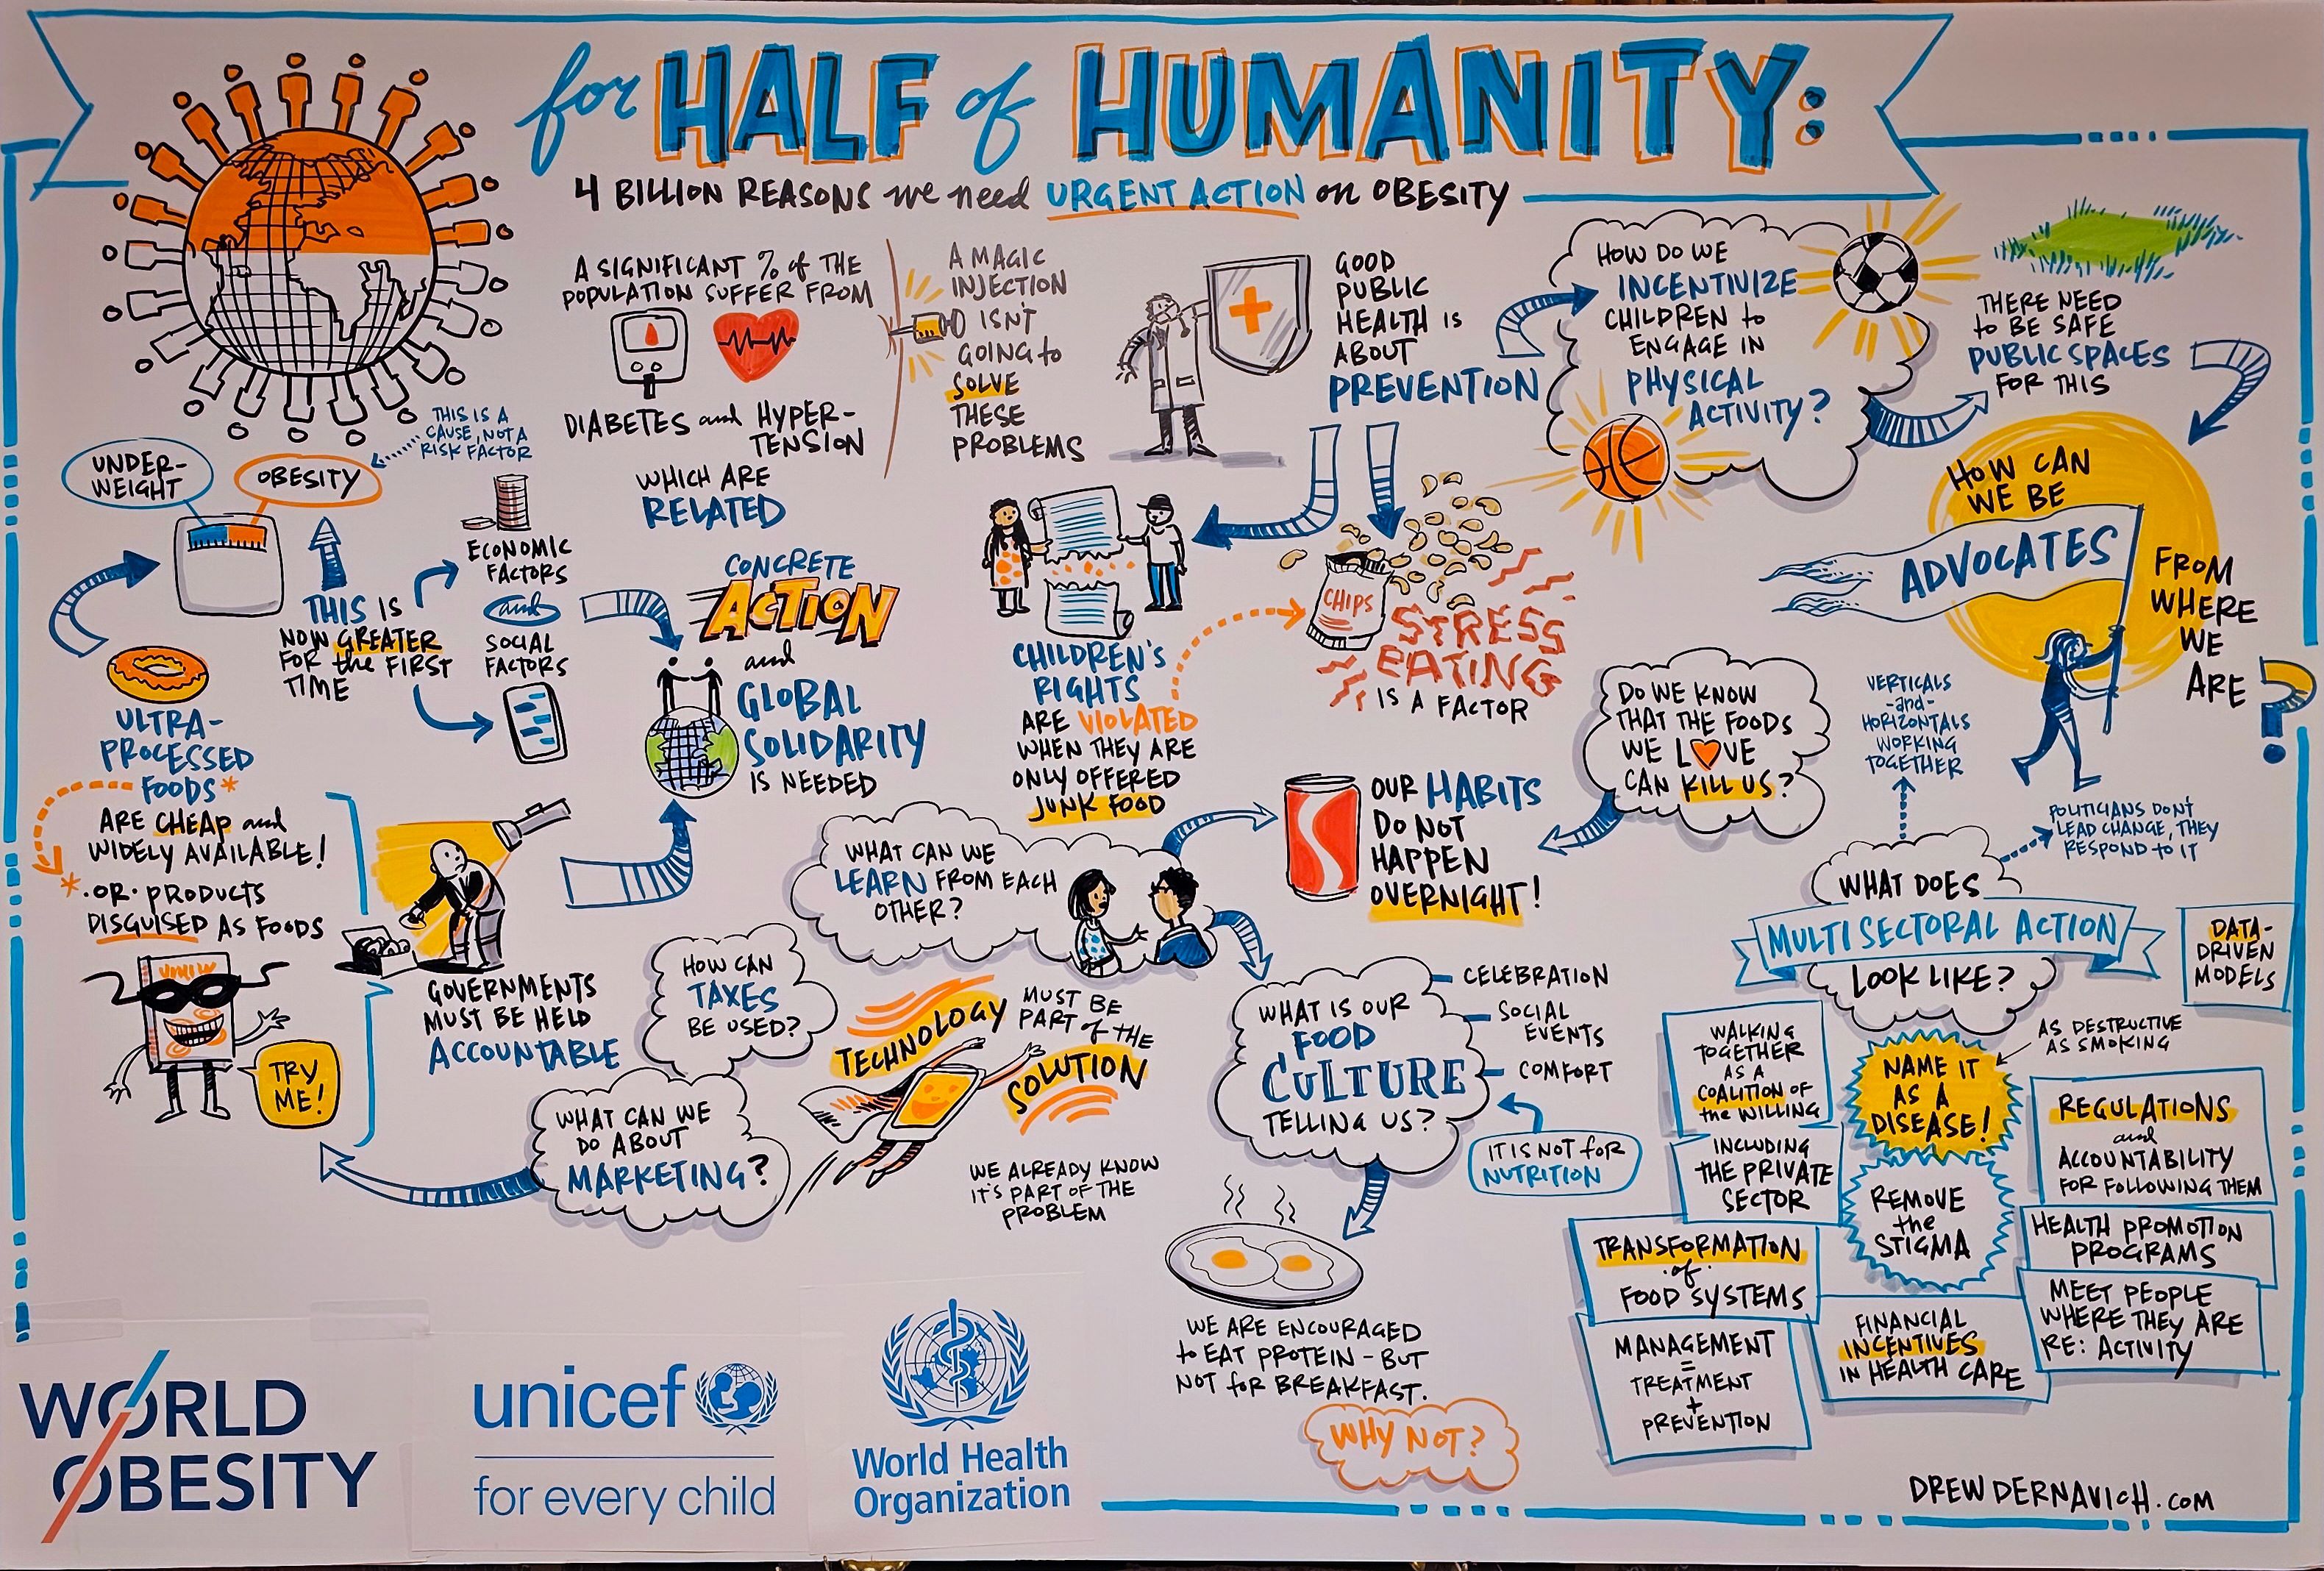 for HALF of HUMANITY:
4 BILLION REASONS we need URGENT ACTION on OBESITY
UNDER-
WEIGHT
OBESITY
THIS IS A
CAUSE, NOT A
RISK FACTOR
THIS IS
NOW GREATER
FOR the FIRST
TIME
ECONOMIC
FACTORS
and
SOCIAL
FACTORS
ULTRA-
PROCESSED
FOODS*
ARE CHEAP and
WIDELY AVAILABLE!
* ·OR· PRODUCTS
DISGUISED AS FOODS
TRY
ME!
GOVERNMENTS
MUST BE HELD
ACCOUNTABLE
A SIGNIFICANT % of THE
POPULATION SUFFER FROM
DIABETES and HYPER-
TENSION
WHICH ARE
RELATED
A MAGIC
INJECTION
ISN'T
GOING to
SOLVE
THESE
PROBLEMS
CONCRETE
ACTION
and
GLOBAL
SOLIDARITY
IS NEEDED
GOOD
PUBLIC
HEALTH IS
ABOUT
PREVENTION
HOW DO WE
INCENTIVIZE
CHILDREN to
ENGAGE IN
PHYSICAL
ACTIVITY?
THERE NEED
to BE SAFE
PUBLIC SPACES
FOR THIS
HOW CAN
WE BE
ADVOCATES
FROM
WHERE
WE
ARE
?
CHILDREN'S
RIGHTS
ARE VIOLATED
WHEN THEY ARE
ONLY OFFERED
JUNK FOOD
CHIPS
STRESS
EATING
IS A FACTOR
DO WE KNOW
THAT THE FOODS
WE LOVE
CAN KILL US?
OUR HABITS
DO NOT
HAPPEN
OVERNIGHT!
WHAT CAN WE
LEARN FROM EACH
OTHER?
HOW CAN
TAXES
BE USED?
WHAT CAN WE
DO ABOUT
MARKETING?
TECHNOLOGY
MUST BE
PART of THE
SOLUTION
WE ALREADY KNOW
IT'S PART OF THE
PROBLEM
WHAT IS OUR
FOOD
CULTURE
TELLING US?
CELEBRATION
SOCIAL
EVENTS
COMFORT
IT IS NOT for
NUTRITION
WE ARE ENCOURAGED
to EAT PROTEIN - BUT
NOT for BREAKFAST.
WHY NOT?
VERTICALS
-and-
HORIZONTALS
WORKING
TOGETHER
POLITICIANS DON'T
LEAD CHANGE, THEY
RESPOND to IT
WHAT DOES
MULTISECTORAL ACTION
LOOK LIKE?
DATA-
DRIVEN
MODELS
WALKING
TOGETHER
AS A
COALITION OF
the WILLING
INCLUDING
THE PRIVATE
SECTOR
NAME IT
AS A
DISEASE!
AS DESTRUCTIVE
AS SMOKING
REMOVE
the
STIGMA
REGULATIONS
and
ACCOUNTABILITY
FOR FOLLOWING THEM
HEALTH PROMOTION
PROGRAMS
MEET PEOPLE
WHERE THEY ARE
RE: ACTIVITY
TRANSFORMATION
·of·
FOOD SYSTEMS
MANAGEMENT
=
TREATMENT
+
PREVENTION
FINANCIAL
INCENTIVES
IN HEALTH CARE
WORLD
OBESITY
unicef
for every child
World Health
Organization
DREWDERNAVICH.COM